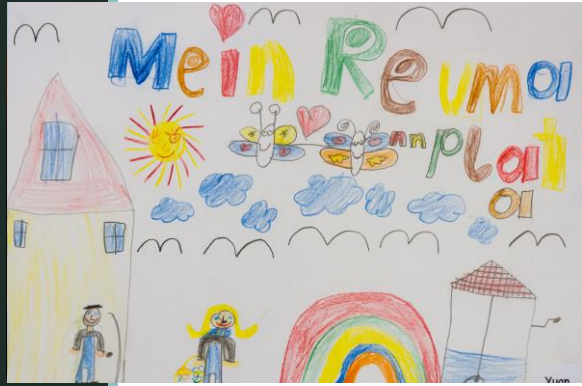 Mein Reuma
nnplat
a
Yuan